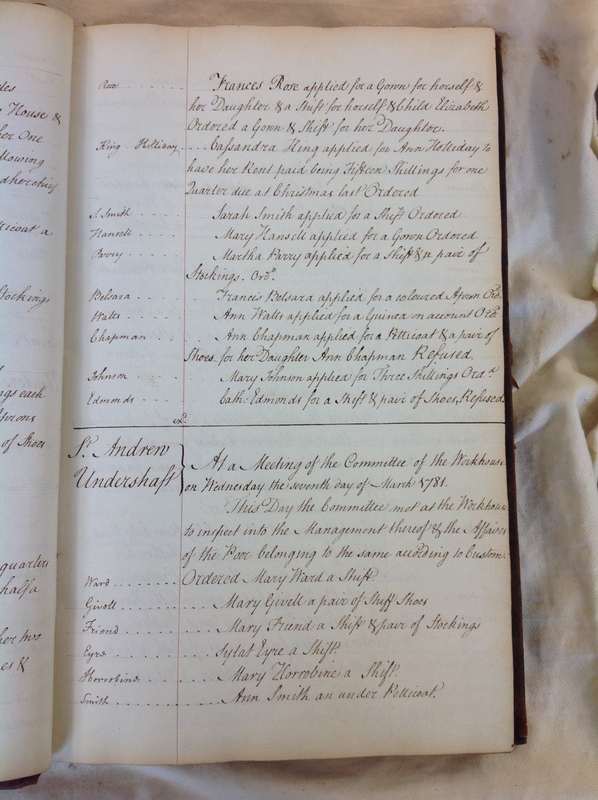 des
House &
her One
llowing
dhorohief
tticoat a
Stockings
ngs each
Aprons
of Shoes
quarters
half a
her two
es &
Rose Frances Rose applied for a Gown for herself &
her Daughter & a Shift for herself & Child Elizabeth
Ordered a Gown & Shift for her Daughter.
King Holliday Cassandra King applied for Ann Holliday to
have her Rent paid being Fifteen Shillings for one
Quarter due at Christmas last Ordered
S. Smith Sarah Smith applied for a Shift Ordered
Hansell Mary Hansell applied for a Gown Ordered
Parry Martha Parry applied for a Shift & a pair of
Stockings. Ord.d
Belsara Francis Belsara applied for a coloured Apron Ord.d
Watts Ann Watts applied for a Guinea on account Ord.d
Chapman Ann Chapman applied for a Petticoat & a pair of
Shoes for her Daughter Ann Chapman Refused
Johnson Mary Johnson applied for Three Shillings Ord.d
Edmonds Cath: Edmonds for a Shift & pair of Shoes, Refused
ex.d
St. Andrew
Undershaft
At a Meeting of the Committee of the Workhouse
on Wednesday the seventh day of March 1781.
This Day the Committee met at the Workhouse
to inspect into the Management thereof & the Affairs
of the Poor belonging to the same according to Custom.
Ward Ordered Mary Ward a Shift
Givell Mary Givell a pair of Stuff Shoes
Friend Mary Friend a Shift & pair of Stockings
Eyre Sylat Eyre a Shift
Horrobine Mary Horrobine a Shift.
Smith Ann Smith an under Petticoat.